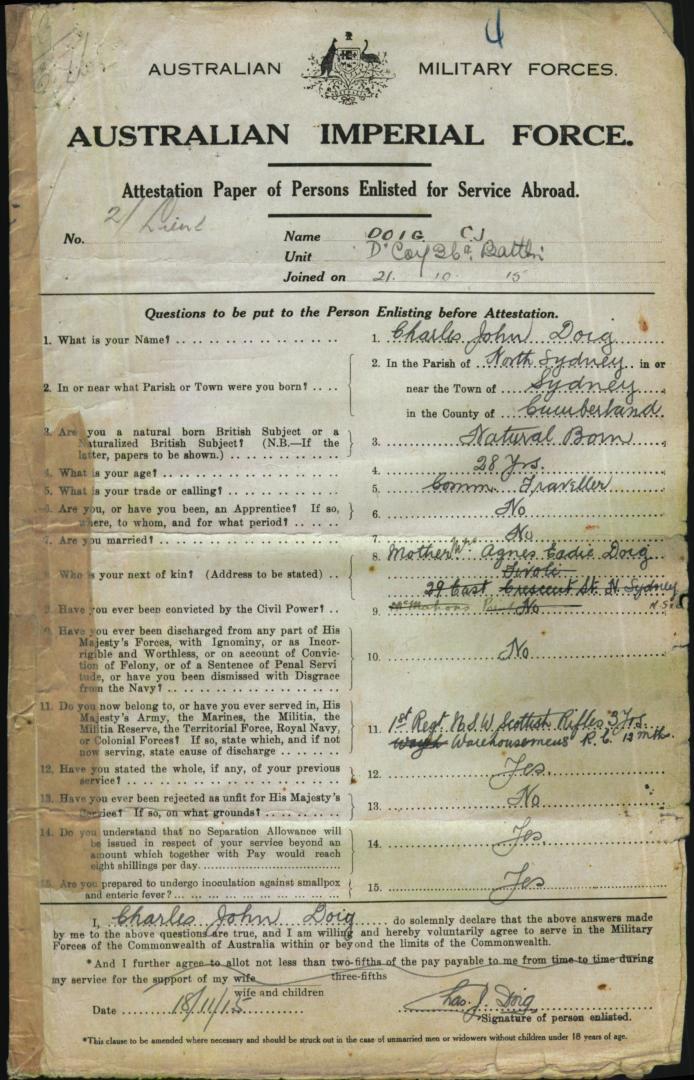 4
AUSTRALIAN MILITARY FORCES.
AUSTRALIAN IMPERIAL FORCE.
Attestation Paper of Persons Enlisted for Service Abroad.
2/Lieut
No. Name DOIG CJ
Unit D Coy 36th Battn
Joined on 21. 10 15
Questions to be put to the Person Enlisting before Attestation.
1. What is your Name? 1. Charles John Doig
2. In or near what Parish or Town were you born? 2. In the Parish of North Sydney in or
near the Town of Sydney
in the County of Cumberland
3. Are you a natural born British Subject or a
Naturalized British Subject? (N.B.—If the
latter, papers to be shown.) 3. Natural Born
4. What is your age? 4. 28 Yrs.
5. What is your trade or calling? 5. Comm. Traveller
6. Are you, or have you been, an Apprentice? If so,
where, to whom, and for what period? 6. No
7. Are you married? 7. No
8. Who is your next of kin? (Address to be stated) 8. Mother Mrs Agnes Eadie Doig
Tivoli
29 East Crescent St. N. Sydney
9. Have you ever been convicted by the Civil Power? 9. No
10. Have you ever been discharged from any part of His
Majesty's Forces, with Ignominy, or as Incor-
rigible and Worthless, or on account of Convic-
tion of Felony, or of a Sentence of Penal Servi
tude, or have you been dismissed with Disgrace
from the Navy? 10. No
11. Do you now belong to, or have you ever served in, His
Majesty's Army, the Marines, the Militia, the
Militia Reserve, the Territorial Force, Royal Navy,
or Colonial Forces? If so, state which, and if not
now serving, state cause of discharge 11. 1st Regt N.S.W Scottish Rifles 3 Yrs.
Warehousemens' R. C. 12 mths.
12. Have you stated the whole, if any, of your previous
service? 12. Yes.
13. Have you ever been rejected as unfit for His Majesty's
Service? If so, on what grounds? 13. No
14. Do you understand that no Separation Allowance will
be issued in respect of your service beyond an
amount which together with Pay would reach
eight shillings per day. 14. Yes.
15. Are you prepared to undergo inoculation against smallpox
and enteric fever? 15. Yes
I, Charles John Doig do solemnly declare that the above answers made
by me to the above questions are true, and I am willing and hereby voluntarily agree to serve in the Military
Forces of the Commonwealth of Australia within or beyond the limits of the Commonwealth.
*And I further agree to allot not less than two-fifths of the pay payable to me from time to time during
three-fifths
my service for the support of my wife
wife and children
Date 18/11/15 Chas. J. Doig
Signature of person enlisted.
*This clause to be amended where necessary and should be struck out in the case of unmarried men or widowers without children under 18 years of age.